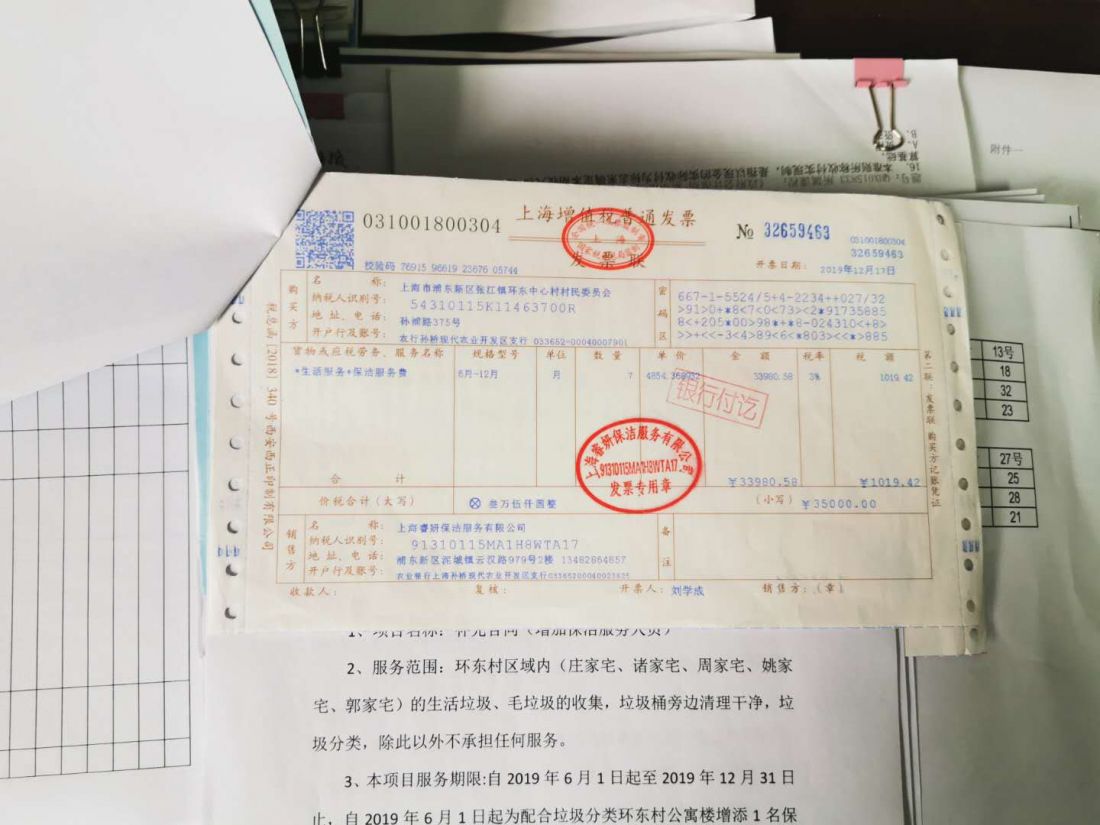 附件一
上海增值税普通发票
发票联
031001800304
№ 32659463
031001800304
32659463
校验码 76915 96619 23676 05744
开票日期: 2019年12月17日
购买方
名 称: 上海市浦东新区张江镇环东中心村村民委员会
纳税人识别号: 54310115K11463700R
地址、电话: 孙桥路375号
开户行及账号: 农行孙桥现代农业开发区支行 033652-00040007901
密码区
667-1-5524/5+4-2234++027/32
>91>0+*8<7<0<73><2*91735885
8<+205*00>98*+*8-024310<+8>
>>+<<-3<4>89<6*803><<*>885
货物或应税劳务、服务名称 规格型号 单位 数量 单价 金额 税率 税额
*生活服务*保洁服务费 6月-12月 月 7 4854.368932 33980.58 3% 1019.42
银行付讫
上海睿妍保洁服务有限公司
91310115MA1H8WTA17
发票专用章
合 计 ¥33980.58 ¥1019.42
价税合计(大写) ⊗ 叁万伍仟圆整 (小写) ¥35000.00
销售方
名 称: 上海睿妍保洁服务有限公司
纳税人识别号: 91310115MA1H8WTA17
地址、电话: 浦东新区泥城镇云汉路979号2楼 13482864857
开户行及账号: 农业银行上海孙桥现代农业开发区支行
备注
收款人: 复核: 开票人: 刘学成 销售方:(章)
税总函〔2018〕340号西安西正印制有限公司
第二联:发票联 购买方记账凭证
13号
18
32
23
27号
25
28
21
1、项目名称: 补充合同(增加保洁服务人员)
2、服务范围: 环东村区域内(庄家宅、诸家宅、周家宅、姚家
宅、郭家宅)的生活垃圾、毛垃圾的收集,垃圾桶旁边清理干净,垃
圾分类,除此以外不承担任何服务。
3、本项目服务期限:自 2019 年 6 月 1 日起至 2019 年 12 月 31 日
止,自 2019 年 6 月 1 日起为配合垃圾分类环东村公寓楼增添 1 名保